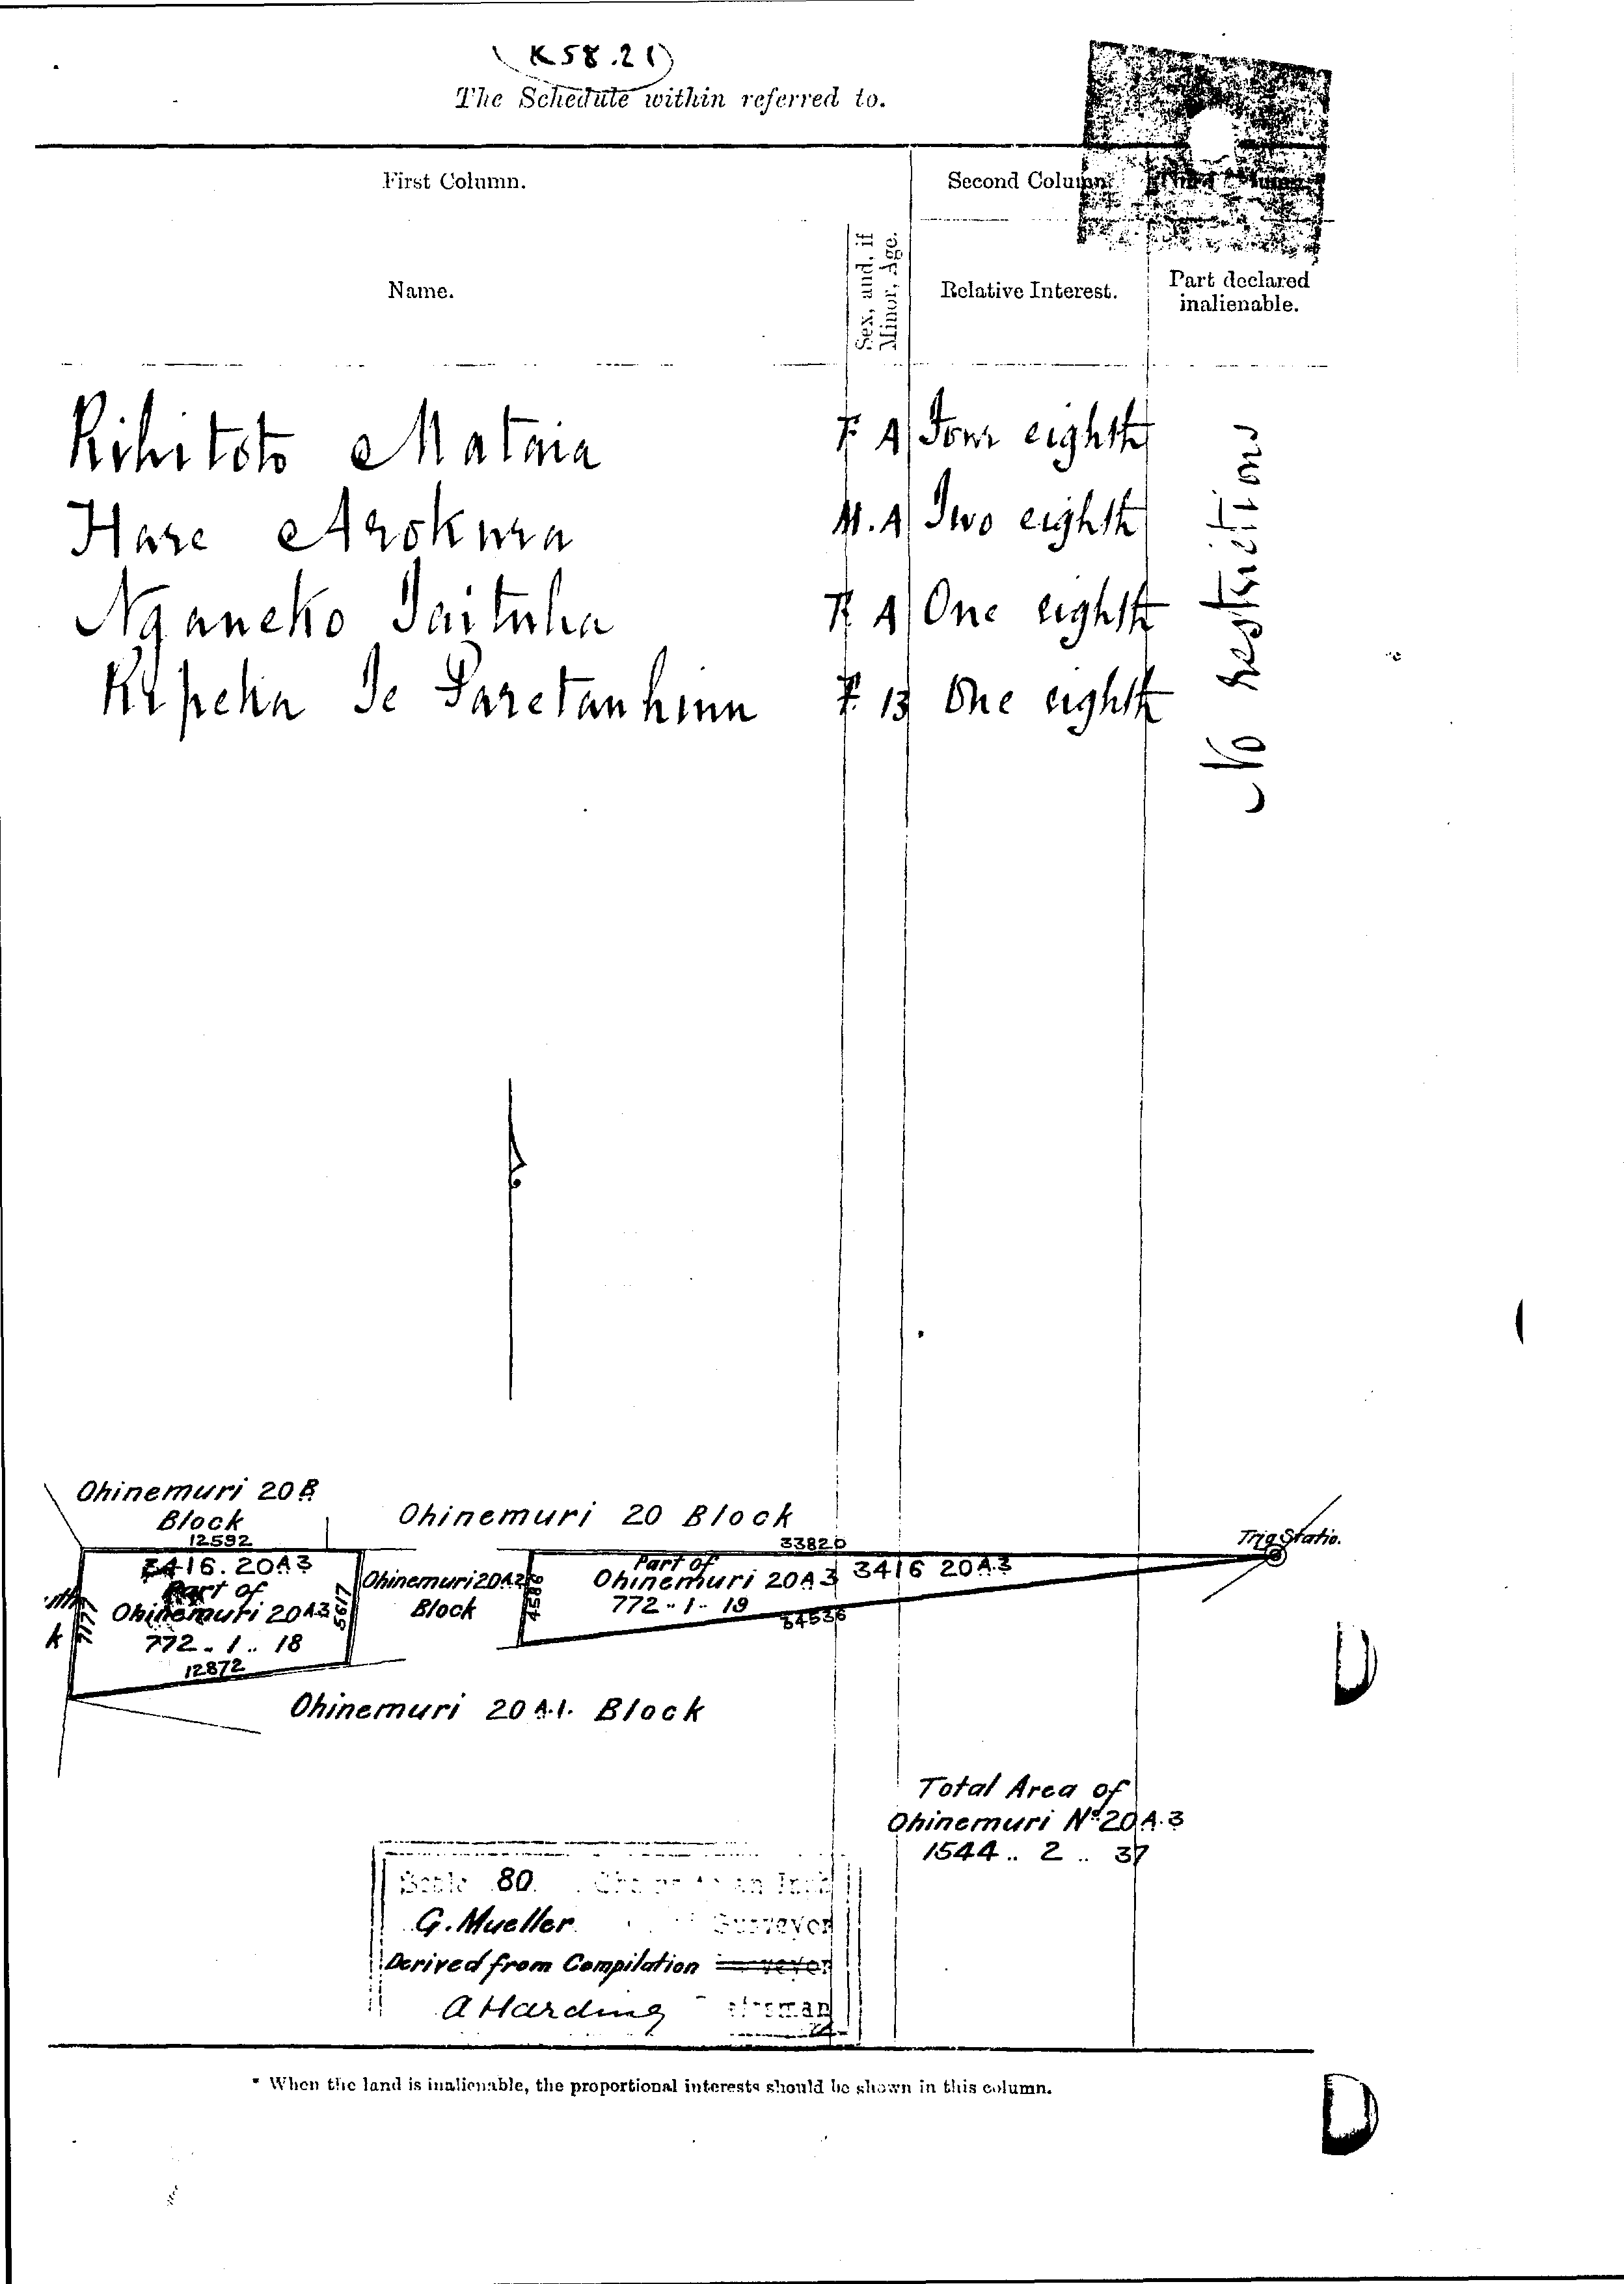 (K58.21)
The Schedule within referred to.
First Column.
Second Column.
Name.
Sex, and, if
Minor, Age.
Relative Interest.
Part declared
inalienable.
Rihitoto Mataia F. A Four eighth
Hare Arokura M. A Two eighth
Nganeko Taituha F. A One eighth
Kepeha Te Paretauhinu F. 13 One eighth
No restrictions
Ohinemuri 20B
Block
12592
Ohinemuri 20 Block
33820
Trig Statio.
3416. 20A3
Part of
Ohinemuri 20A3
772 . 1 .. 18
12872
7177
5617
k
Ohinemuri 20A2
Block
4586
Part of
Ohinemuri 20A3
3416 20A.3
772 .. 1 .. 19
34536
Ohinemuri 20A.1. Block
Total Area of
Ohinemuri No 20A.3
1544 .. 2 .. 37
Scale 80. Chains to an Inch
G. Mueller Surveyor
Derived from Compilation
A Harding
* When the land is inalienable, the proportional interests should be shown in this column.
D
D